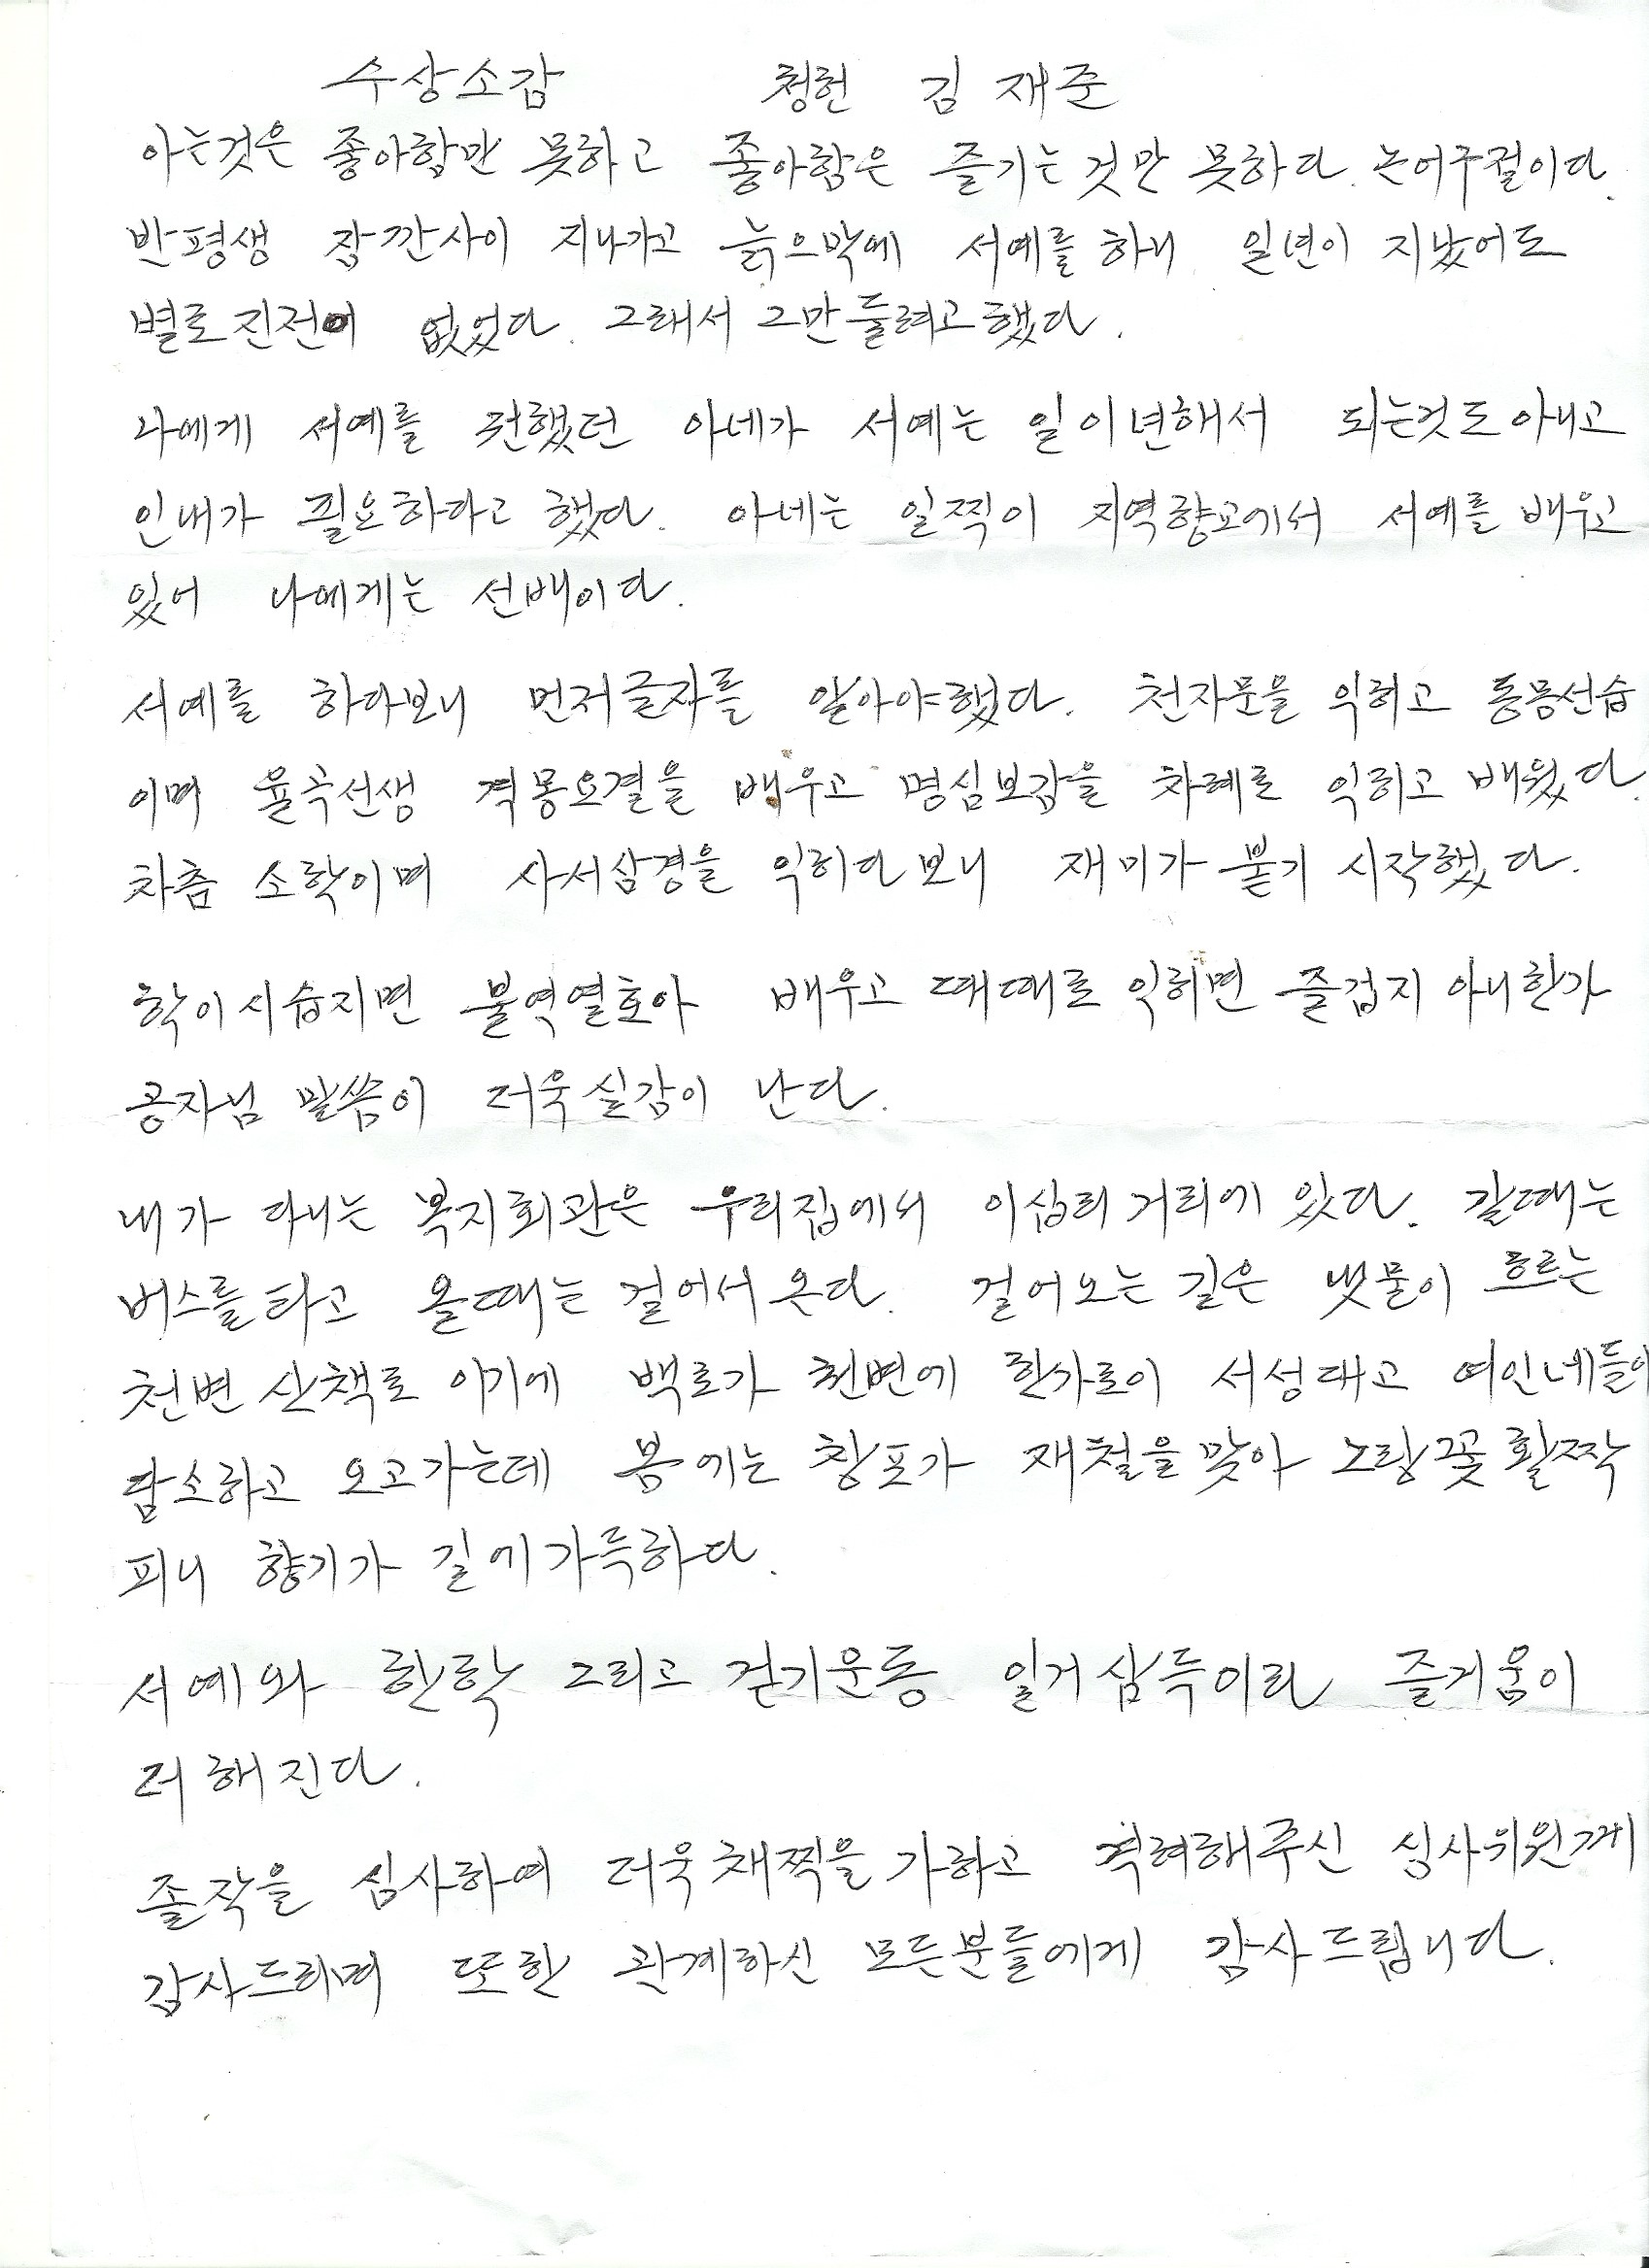 수상소감 청헌 김재준
아는것은 좋아함만 못하고 좋아함은 즐기는 것만 못하다. 논어구절이다.
반평생 잠깐사이 지나가고 늙으막에 서예를 하니 일년이 지났어도
별로 진전이 없었다. 그래서 그만둘려고 했다.
나에게 서예를 권했던 아네가 서예는 일이년해서 되는것도 아니고
인내가 필요하다고 했다. 아네는 일찍이 지역향교에서 서예를 배우고
있어 나에게는 선배이다.
서예를 하다보니 먼저글자를 알아야했다. 천자문을 익히고 동몽선습
이며 율곡선생 격몽요결을 배우고 명심보감을 차례로 익히고 배웠다.
차츰 소학이며 사서삼경을 익히다보니 재미가 붙기 시작했다.
학이시습지면 불역열호아 배우고 때때로 익히면 즐겁지 아니한가
공자님 말씀이 더욱 실감이 난다.
내가 다니는 복지회관은 우리집에서 이십리 거리에 있다. 갈때는
버스를 타고 올때는 걸어서 온다. 걸어오는 길은 냇물이 흐르는
천변 산책로 이기에 백로가 천변에 한가로이 서성대고 여인네들이
담소하고 오고가는데 봄에는 창포가 재철을 맞아 노랑꽃 활짝
피니 향기가 길에 가득하다.
서예와 한학 그리고 걷기운동 일거삼득이라 즐거움이
더해진다.
졸작을 심사하여 더욱 채찍을 가하고 격려해주신 심사위원께
감사드리며 또한 관계하신 모든분들에게 감사드립니다.